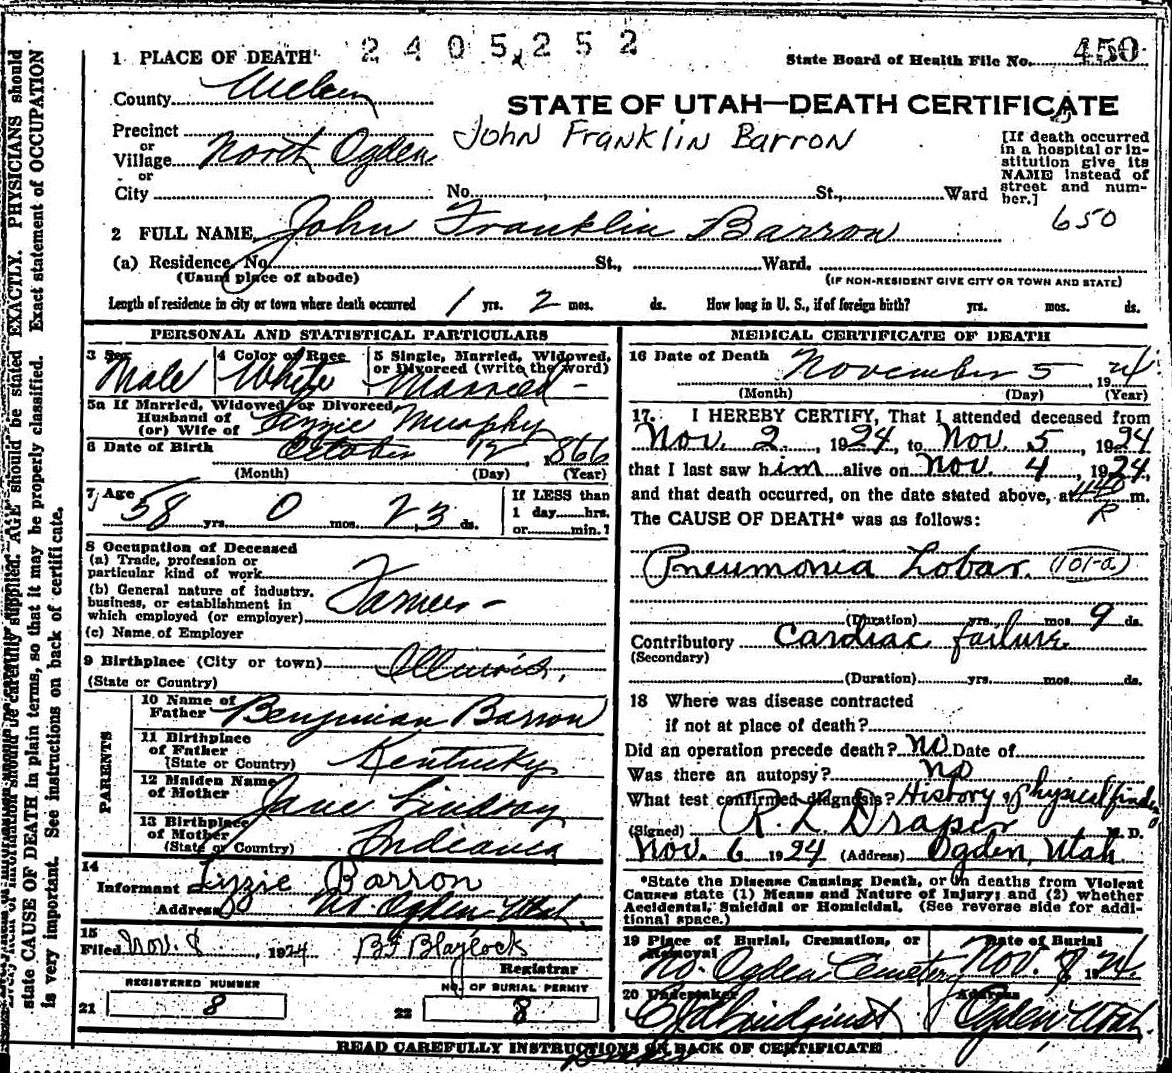 2405252
1 PLACE OF DEATH
State Board of Health File No. 450
County Weber
STATE OF UTAH—DEATH CERTIFICATE
Precinct
or
Village North Ogden
or
City
John Franklin Barron
No. St., Ward
[If death occurred
in a hospital or in-
stitution give its
NAME instead of
street and num-
ber.]
650
2 FULL NAME John Franklin Barron
(a) Residence, No. St., Ward.
(Usual place of abode)
(IF NON-RESIDENT GIVE CITY OR TOWN AND STATE)
Length of residence in city or town where death occurred 1 yrs. 2 mos. ds. How long in U. S., if of foreign birth? yrs. mos. ds.
PERSONAL AND STATISTICAL PARTICULARS
3 Sex Male
4 Color or Race White
5 Single, Married, Widowed,
or Divorced (write the word)
Married -
5a If Married, Widowed or Divorced
Husband of
(or) Wife of Lizzie Murphy
6 Date of Birth October 12, 1866
(Month) (Day) (Year)
7 Age 58 yrs. 0 mos. 23 ds.
If LESS than
1 day hrs.
or min.?
8 Occupation of Deceased
(a) Trade, profession or
particular kind of work
(b) General nature of industry,
business, or establishment in
which employed (or employer)
Farmer -
(c) Name of Employer
9 Birthplace (City or town) Illinois.
(State or Country)
PARENTS
10 Name of
Father Benjiman Barron
11 Birthplace
of Father
(State or Country) Kentucky
12 Maiden Name
of Mother Jane Lindsay
13 Birthplace
of Mother
(State or Country) Indiana
14
Informant Lizzie Barron
Address No. Ogden Utah.
15
Filed Nov. 8, 1924 BF Blaylock
Registrar
REGISTERED NUMBER
21 8
NO. OF BURIAL PERMIT
22 8
MEDICAL CERTIFICATE OF DEATH
16 Date of Death November 5, 1924
(Month) (Day) (Year)
17. I HEREBY CERTIFY, That I attended deceased from
Nov. 2, 1924, to Nov. 5, 1924
that I last saw him alive on Nov. 4, 1924,
and that death occurred, on the date stated above, at m.
The CAUSE OF DEATH* was as follows:
Pneumonia Lobar. (101-a)
(Duration) yrs. mos. 9 ds.
Contributory Cardiac failure
(Secondary)
(Duration) yrs. mos. ds.
18 Where was disease contracted
if not at place of death?
Did an operation precede death? no Date of
Was there an autopsy? no
What test confirmed diagnosis? History & physical findg
(Signed) R. L. Draper M. D.
Nov. 6 1924 (Address) Ogden, Utah
*State the Disease Causing Death, or in deaths from Violent
Causes state (1) Means and Nature of Injury; and (2) whether
Accidental, Suicidal or Homicidal. (See reverse side for addi-
tional space.)
19 Place of Burial, Cremation, or
Removal
No. Ogden Cemetery
Date of Burial
Nov. 8 1924
20 Undertaker
Address
Ogden Utah.
READ CAREFULLY INSTRUCTIONS ON BACK OF CERTIFICATE
EXACTLY. PHYSICIANS should
Exact statement of OCCUPATION
supplied. AGE should be stated
state CAUSE OF DEATH in plain terms, so that it may be properly classified.
is very important. See instructions on back of certificate.